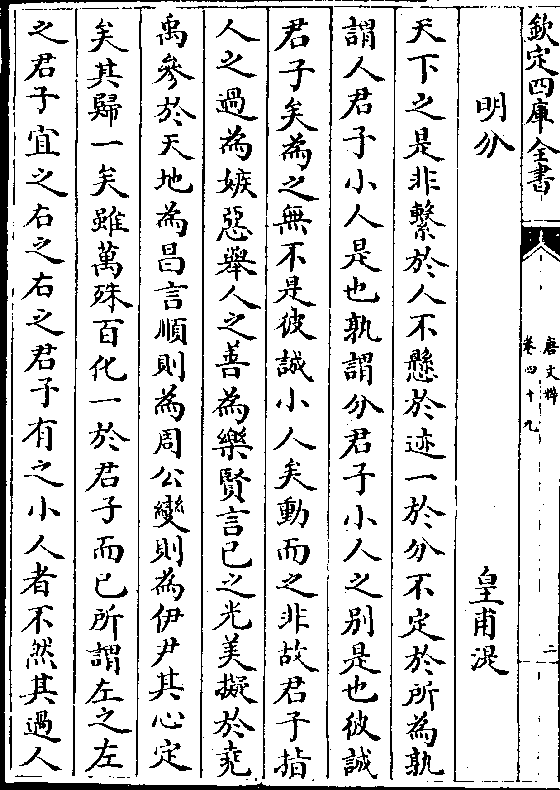 欽定四庫全書
唐文粹
卷四十九
二
明分
皇甫湜
天下之是非繫於人不懸於迹一於分不定於所為孰
謂人君子小人是也孰謂分君子小人之别是也彼誠
君子矣為之無不是彼誠小人矣動而之非故君子指
人之過為嫉惡舉人之善為樂賢言已之光美擬於堯
禹參於天地為昌言順則為周公變則為伊尹其心定
矣其歸一矣雖萬殊百化一於君子而已所謂左之左
之君子宜之右之右之君子有之小人者不然其過人